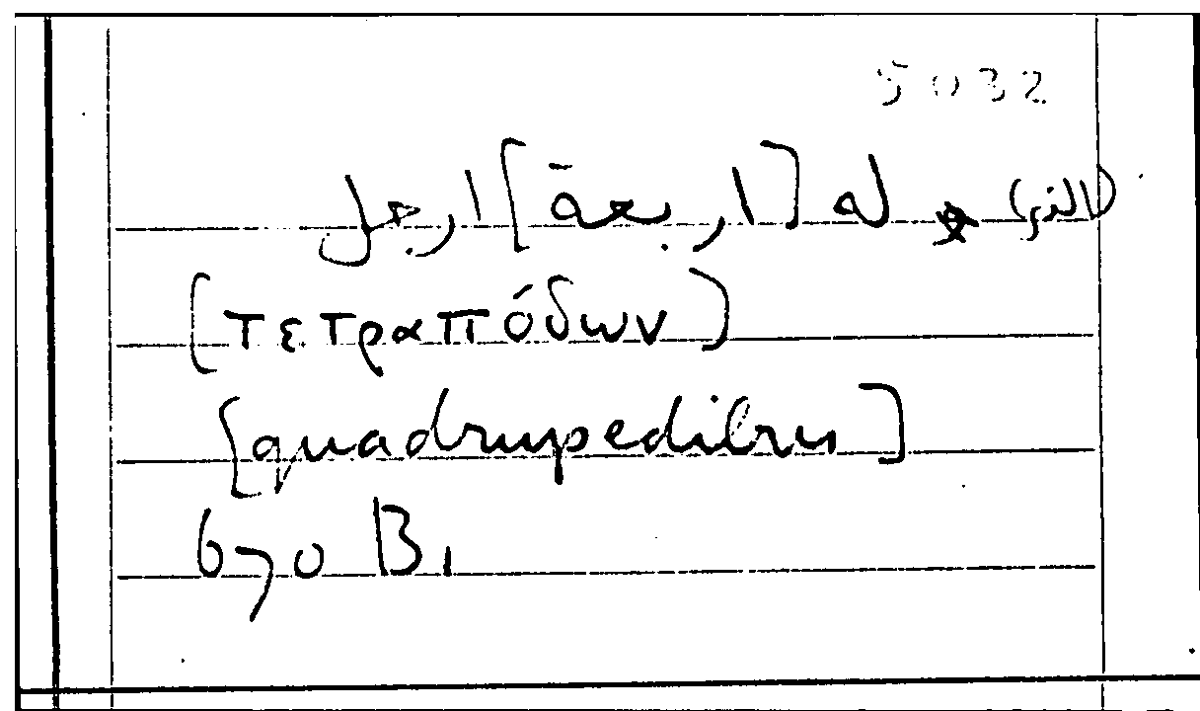 5032
(الذي) له [اربعة] ارجل
(τετραπόδων)
[quadrupedibus]
670 B1